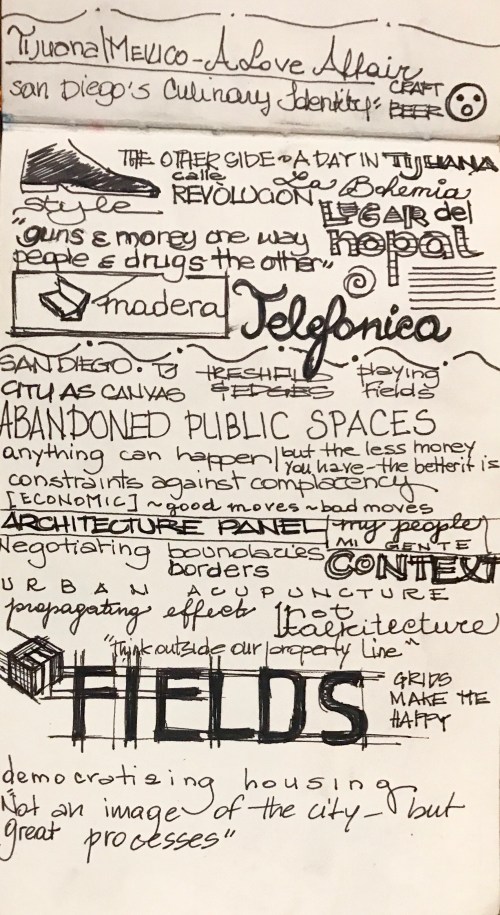 Tijuana/Mexico - A Love Affair
San Diego's Culinary Identity" CRAFT BEER
THE OTHER SIDE ~ A DAY IN TIJUANA
calle REVOLUCION La Bohemia
style
LUGAR del nopal
"guns & money one way
people & drugs the other"
madera
Telefonica
SAN DIEGO. TJ FRESH FLD playing
CITY AS CANVAS & EDGES fields
ABANDONED PUBLIC SPACES
anything can happen | but the less money
you have - the better it is
constraints against complacency
[ECONOMIC] ~ good moves ~ bad moves
ARCHITECTURE PANEL my people
MI GENTE
Negotiating boundaries
borders CONTEXT
URBAN ACUPUNCTURE
propagating effect not
talkitecture
"think outside our property line"
FIELDS
GRIDS
MAKE ME
HAPPY
democratising housing
"Not an image of the city - but
great processes"